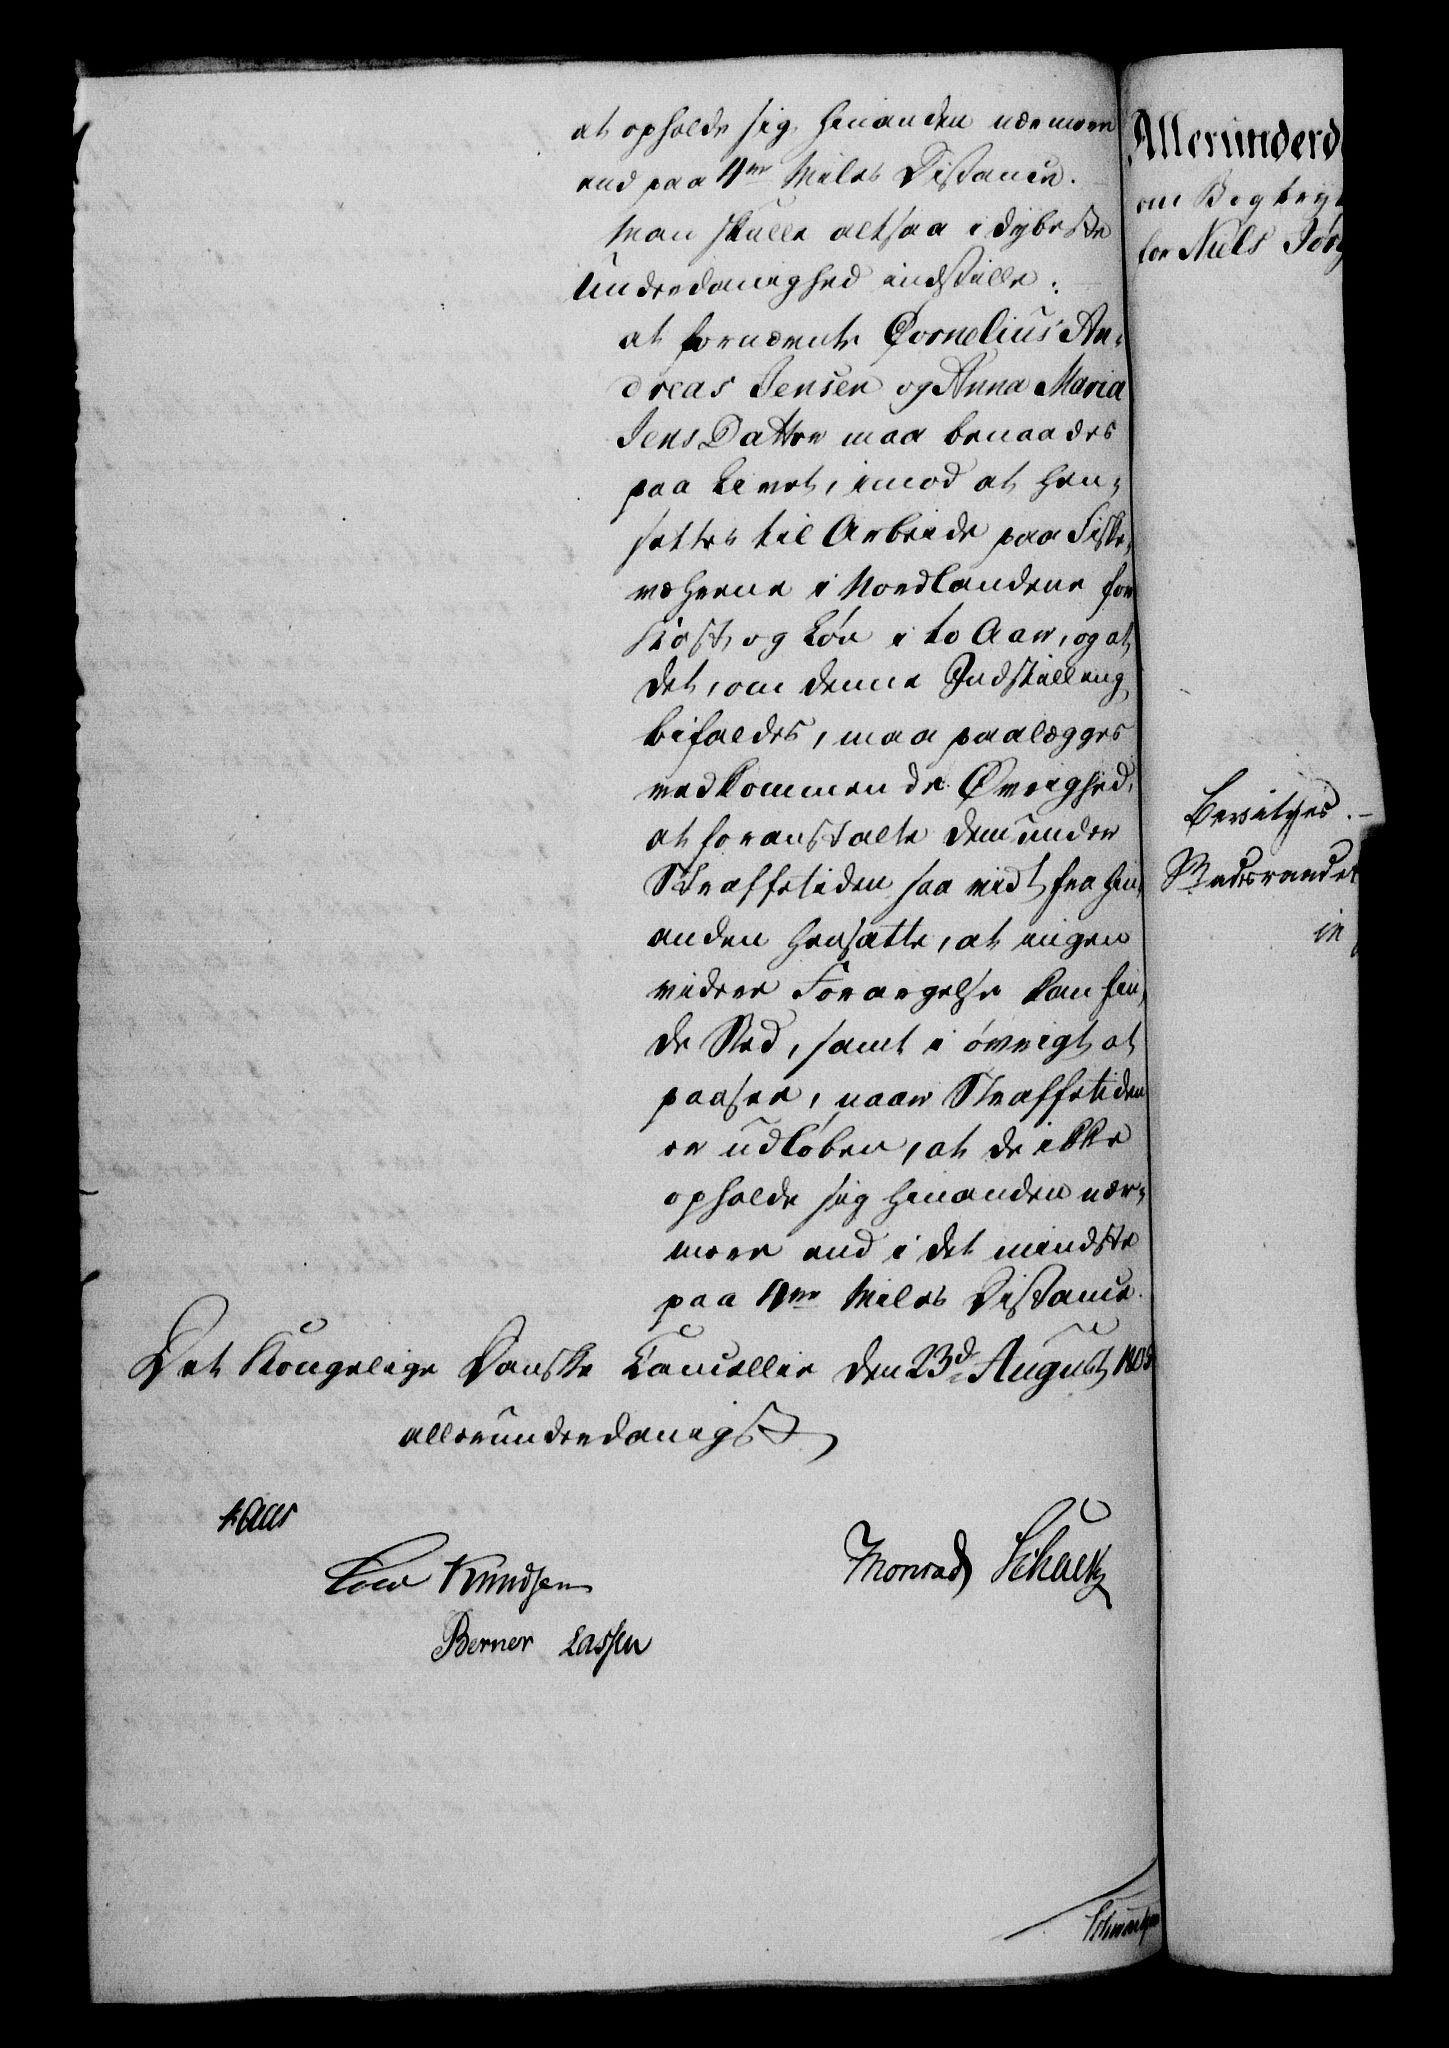 at opholde sig hinanden nærmere
end paa 4re Miles Distance.
Man skulle altsaa i dybeste
Underdanighed indstille:
at fornævnte Cornelius An-
dreas Jensen og Anna Maria
Jens Datter maa benaades
paa Livet, imod at hen-
sættes til Arbeide paa Fiske-
værerne i Nordlandene for
Kost og Løn i to Aar, og at
det, om denne Indstilling
bifaldes, maa paalægges
vedkommende Øvrighed,
at foranstalte dem under
Straffetiden saa vidt fra hin-
anden hensatte, at ingen
videre Forargelse kan fin-
de Sted, samt i øvrigt at
paasee, naar Straffetiden
er udløben, at de ikke
opholde sig hinanden nær-
mere end i det mindste
paa 4re Miles Distance.
Det Kongelige Danske Cancellie den 23d August
allerunderdanigst
Kaas
Cold Knudsen
Monrad Schultz
Berner Lassen
Allerunderd
om
for Niels Jørg
Bevilges.